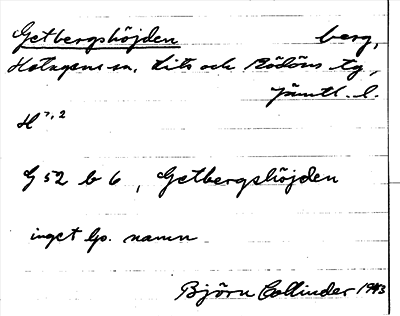 Getbergshöjden berg,
Hotagens sn. Lits och Rödöns tg,
Jämtl. l.
H 7,2
G 52 b 6, Getbergshöjden
inget lp. namn
Björn Collinder 1943